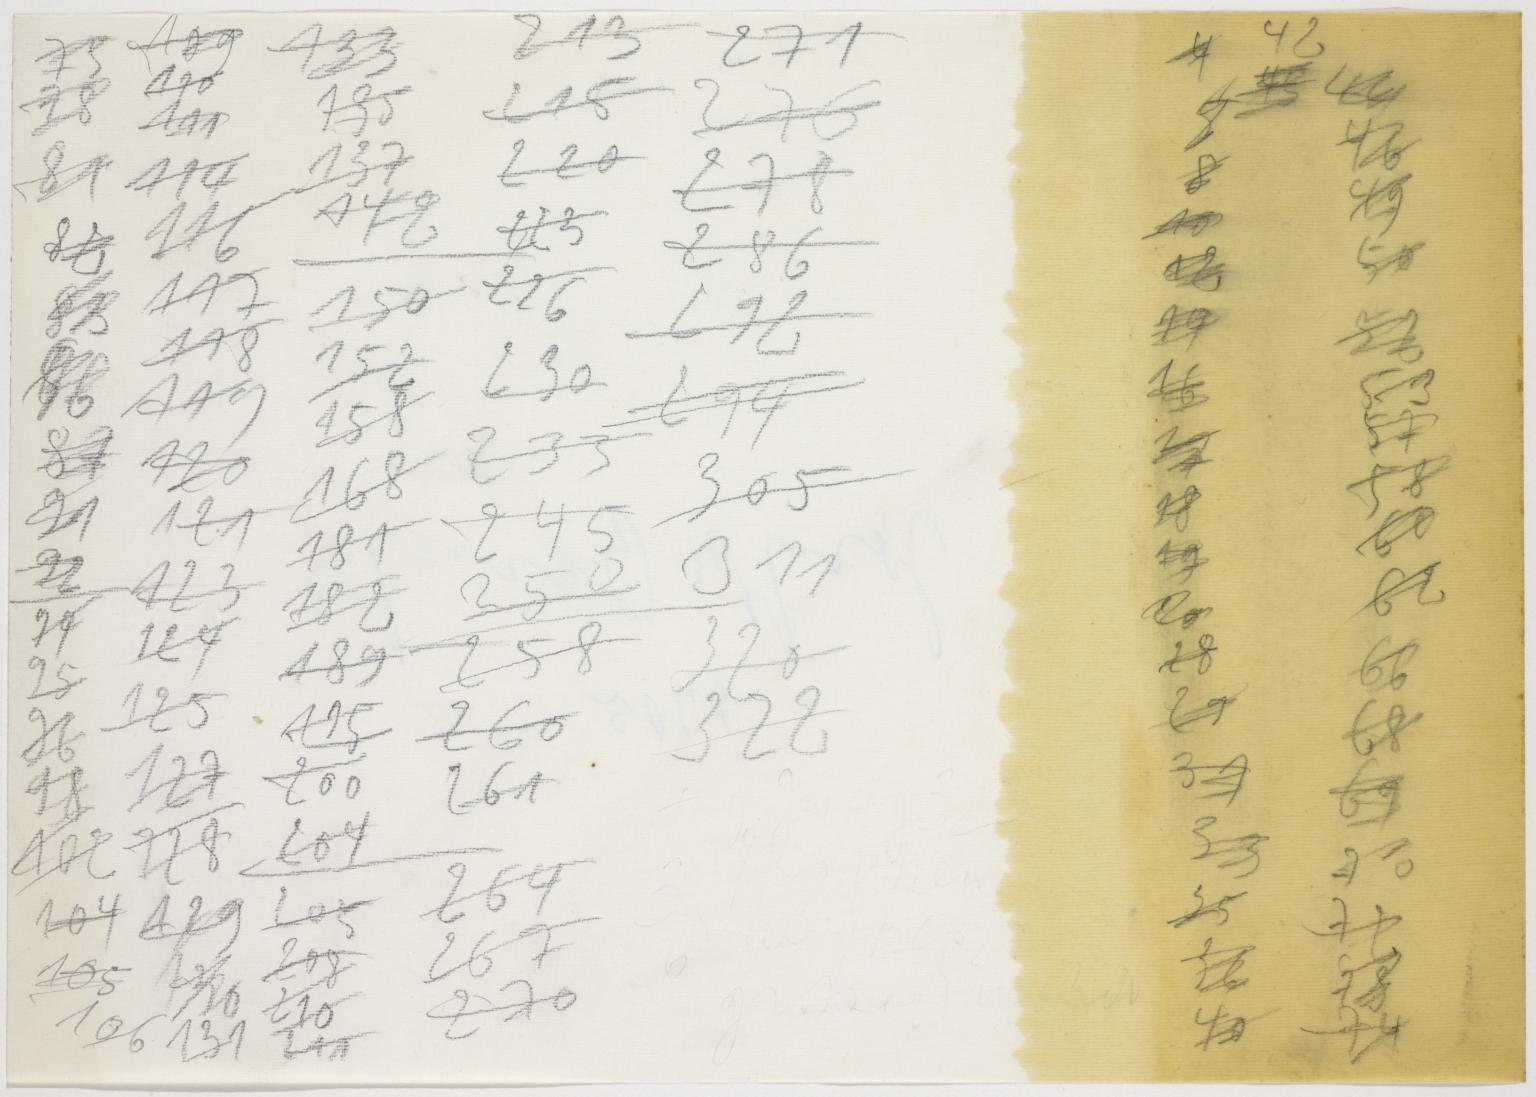 75
78
81
109
110
111
114
116
117
118
119
120
121
123
124
125
127
128
129
130
131
91
92
94
95
96
98
102
104
105
106
133
135
137
142
150
152
158
168
181
182
189
195
200
204
205
208
210
211
213
215
220
223
226
230
235
245
250
258
260
261
264
267
270
271
276
278
286
292
294
305
311
320
322
4
8
10
12
14
16
17
18
19
20
28
29
31
33
35
36
40
42
44
46
49
50
52
53
54
58
60
62
66
68
69
70
71
73
74